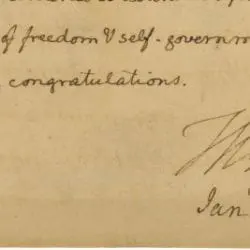 of freedom & self-government
congratulations.
Th
Jan